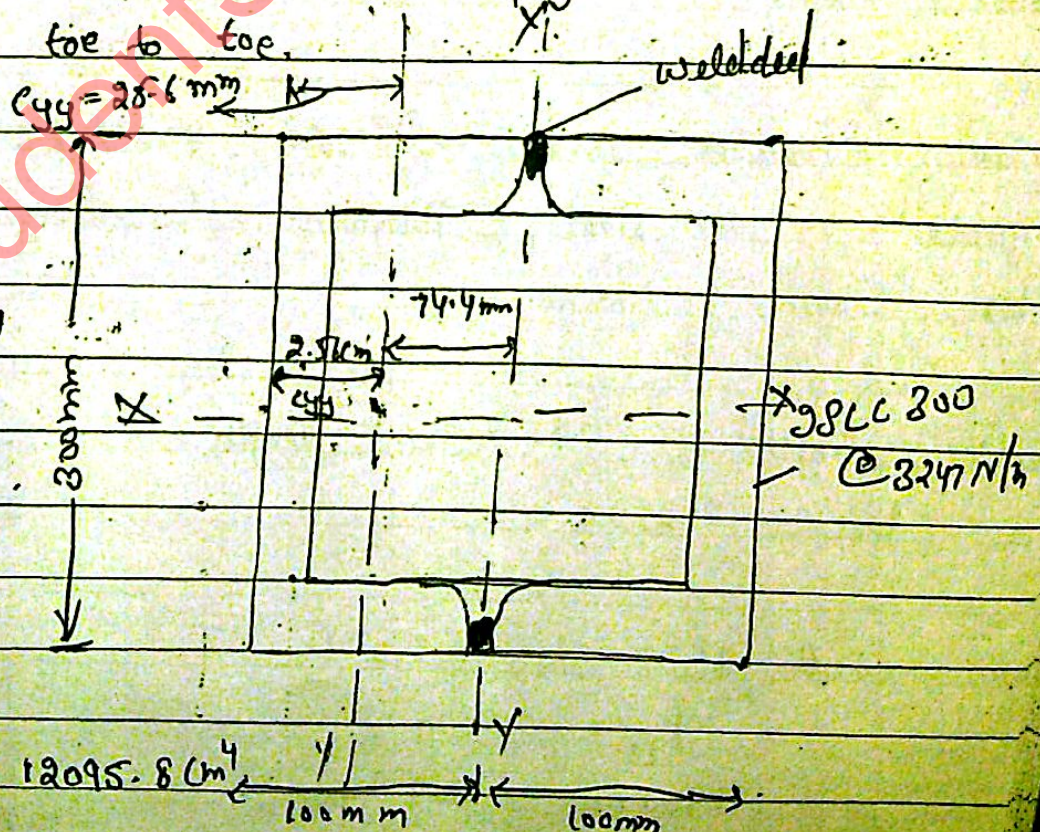 toe to toe.
welded
Cyy = 25.6 mm
74.4 mm
2.56cm
Cyy
300mm
X
X
ISLC 300
@ 324.7 N/m
Y
12095.8 Cm⁴
100mm
100mm